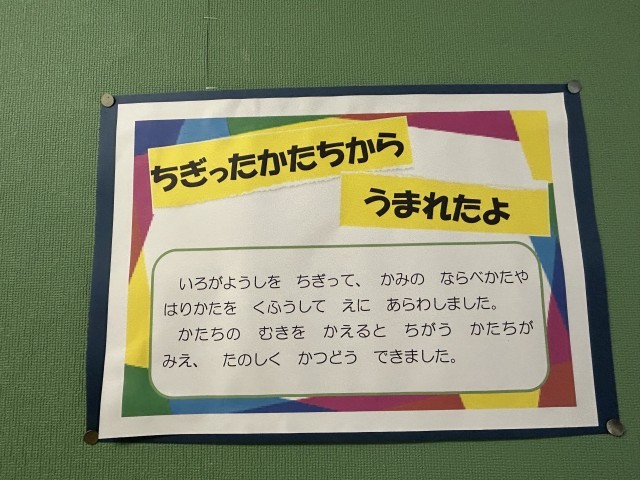 ちぎったかたちから
うまれたよ
いろがようしを ちぎって、 かみの ならべかたや
はりかたを くふうして えに あらわしました。
かたちの むきを かえると ちがう かたちが
みえ、 たのしく かつどう できました。